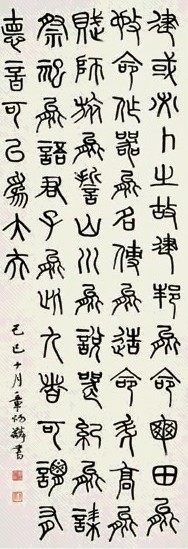 建或必卜之故建邦能命龜田能
施命作器能名使能造命升高能
賦師旅能誓山川能說喪紀能誄
祭祀能語君子能此九者可謂有
悳音可㠯爲大夫
己巳十月章炳麟書